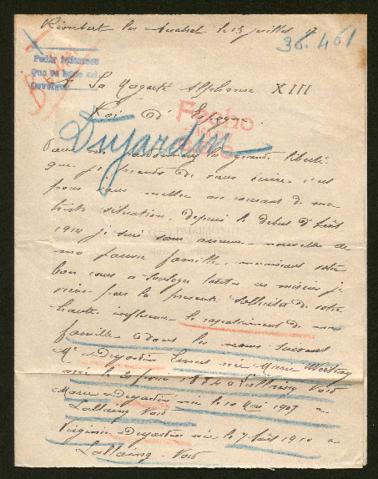 Rombert les Andrest le 15 juillet
36.461
Pedir informes
Que se haga así
Devolver
A Sa Majesté Alphonse XIII
Roi d'Espagne.
Fecho
Dujardin
Pardonnez la grande liberté
que je prends de vous écrire c'est
pour vous mettre au courant de ma
triste situation. depuis le début d'août
1914 je suis sans aucune nouvelle de
ma pauvre famille. connaissant votre
bon cœur à soulager toutes ces misères je
viens par la présente solliciter de votre
haute influence le rapatriement de ma
famille dont les noms suivant
Me Dujardin née Marie
née le 2 1884 à Lallaing Nord
Marie Dujardin née le 10 Mai 1907 à
Lallaing Nord
Virginie Dujardin née le 7 Août 1910 à
Lallaing Nord